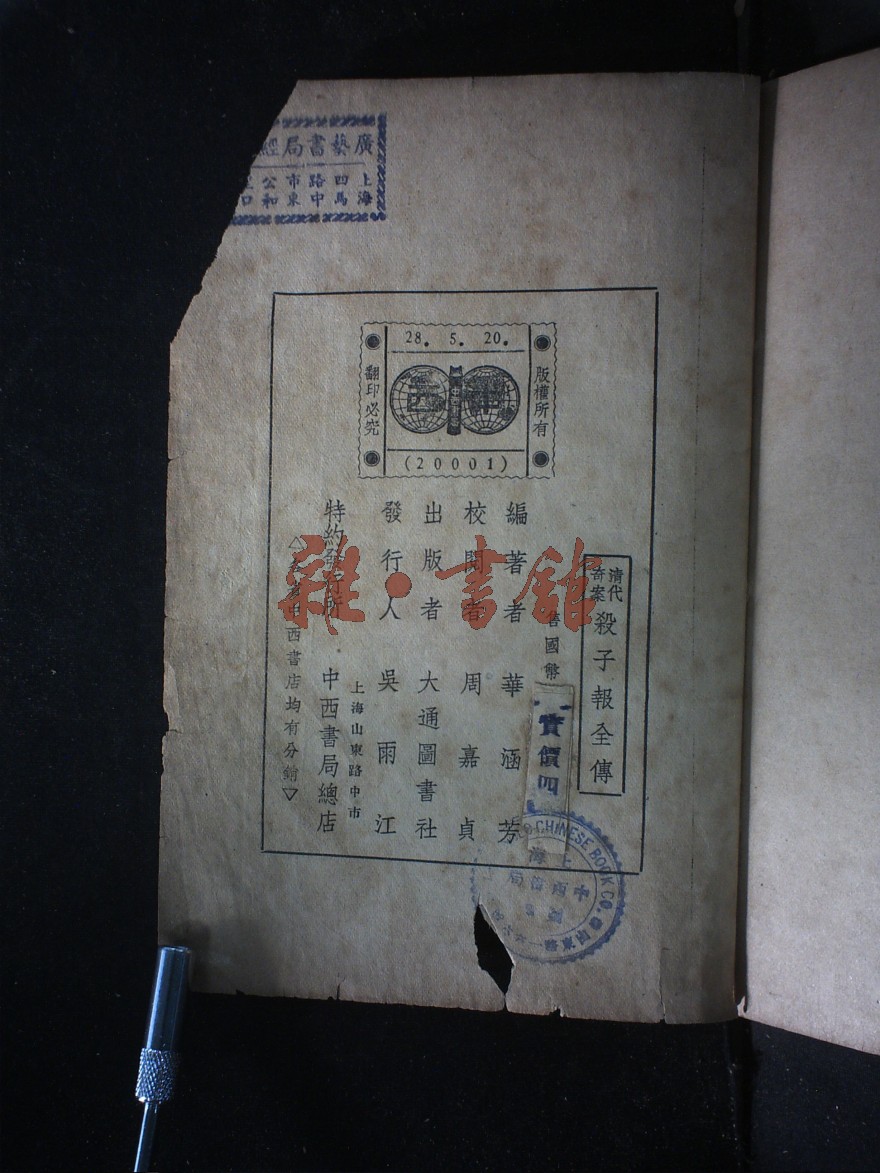 廣藝書局經
上海四馬路中市東公和
28. 5. 20.
版權所有
翻印必究
(20001)
清代奇案 殺子報全傳
售國幣
實價四
編著者 華涵芳
校閱者 周嘉貞
出版者 大通圖書社
發行人 吳雨江
上海山東路中市
特約發行所 中西書局總店
中西書店均有分銷▽
雜·書館
CHINESE BOOK CO.
上海